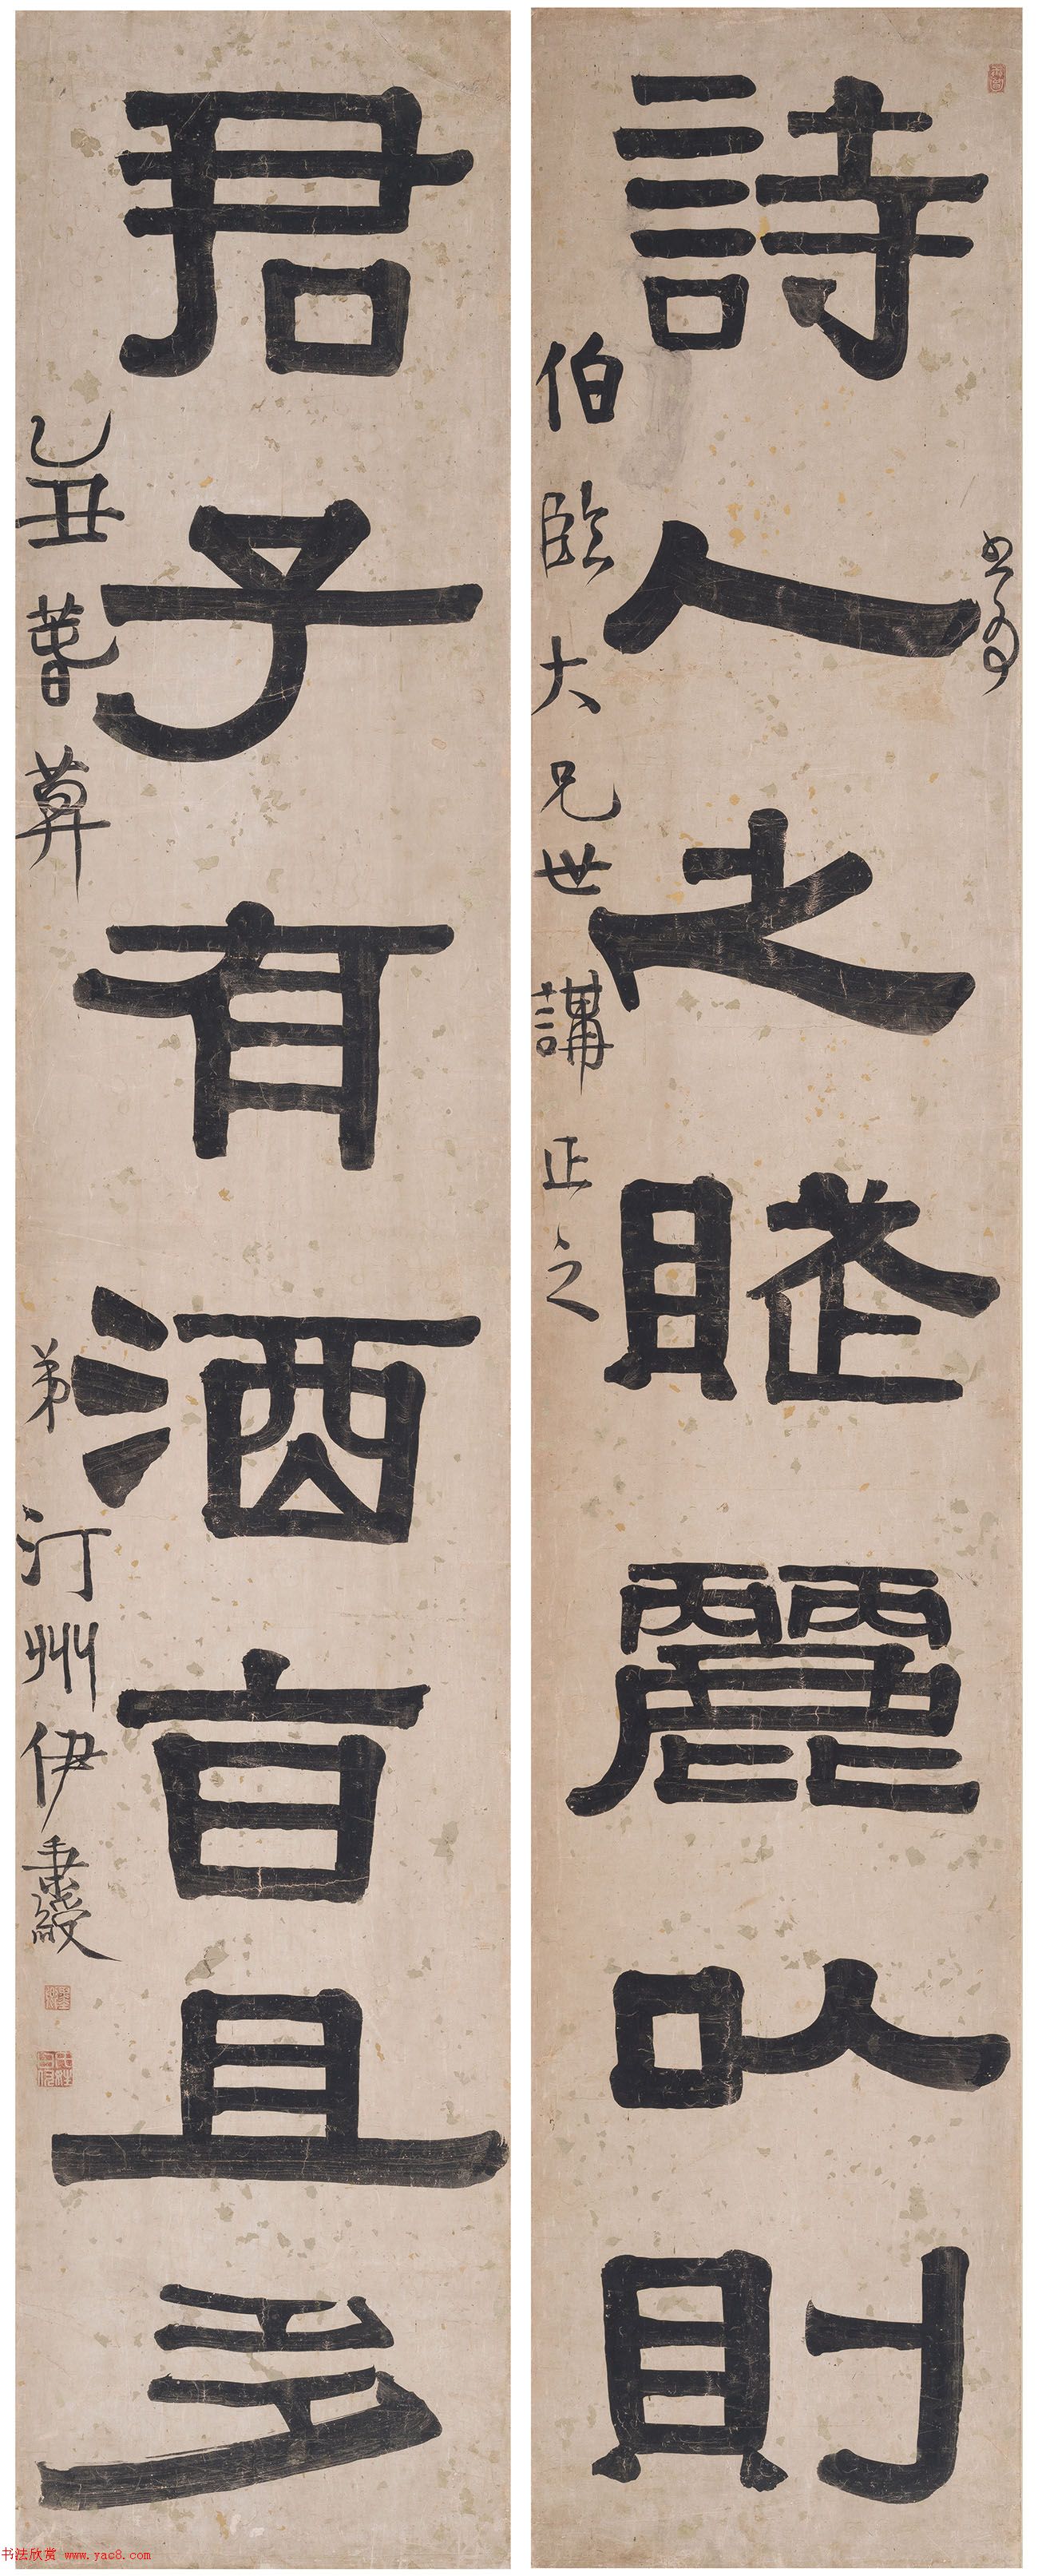 詩人之賦麗以則
書爲
伯臨大兄世講正之
君子有酒旨且多
乙丑暮春
弟汀州伊秉綬
书法欣赏 www.yac8.com